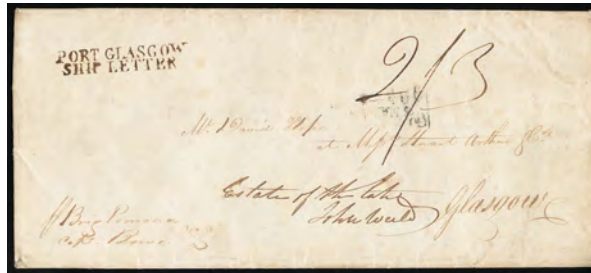 PORT GLASGOW
SHIP LETTER
2/3
Mr David
at Messrs Stuart Arthur & Co
Estate of the late
John Weeld Glasgow
Brig Pomona
Capt Bowe